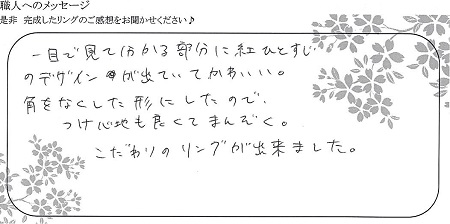 職人へのメッセージ
是非 完成したリングのご感想をお聞かせください♪
一目で見て分かる部分に紅ひとすじ
のデザインが出ていてかわいい。
角をなくした形にしたので、
つけ心地も良くてまんぞく。
こだわりのリングが出来ました。